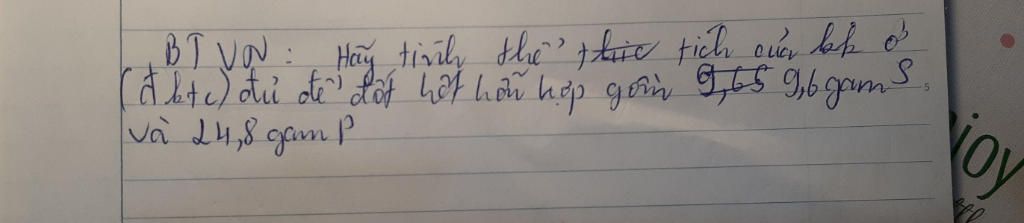 BTVN: Hãy tính thể thíc tích của kk ở
(đktc) đủ để đốt hết hỗn hợp gồm 9,65 9,6 gam S
và 24,8 gam P
joy